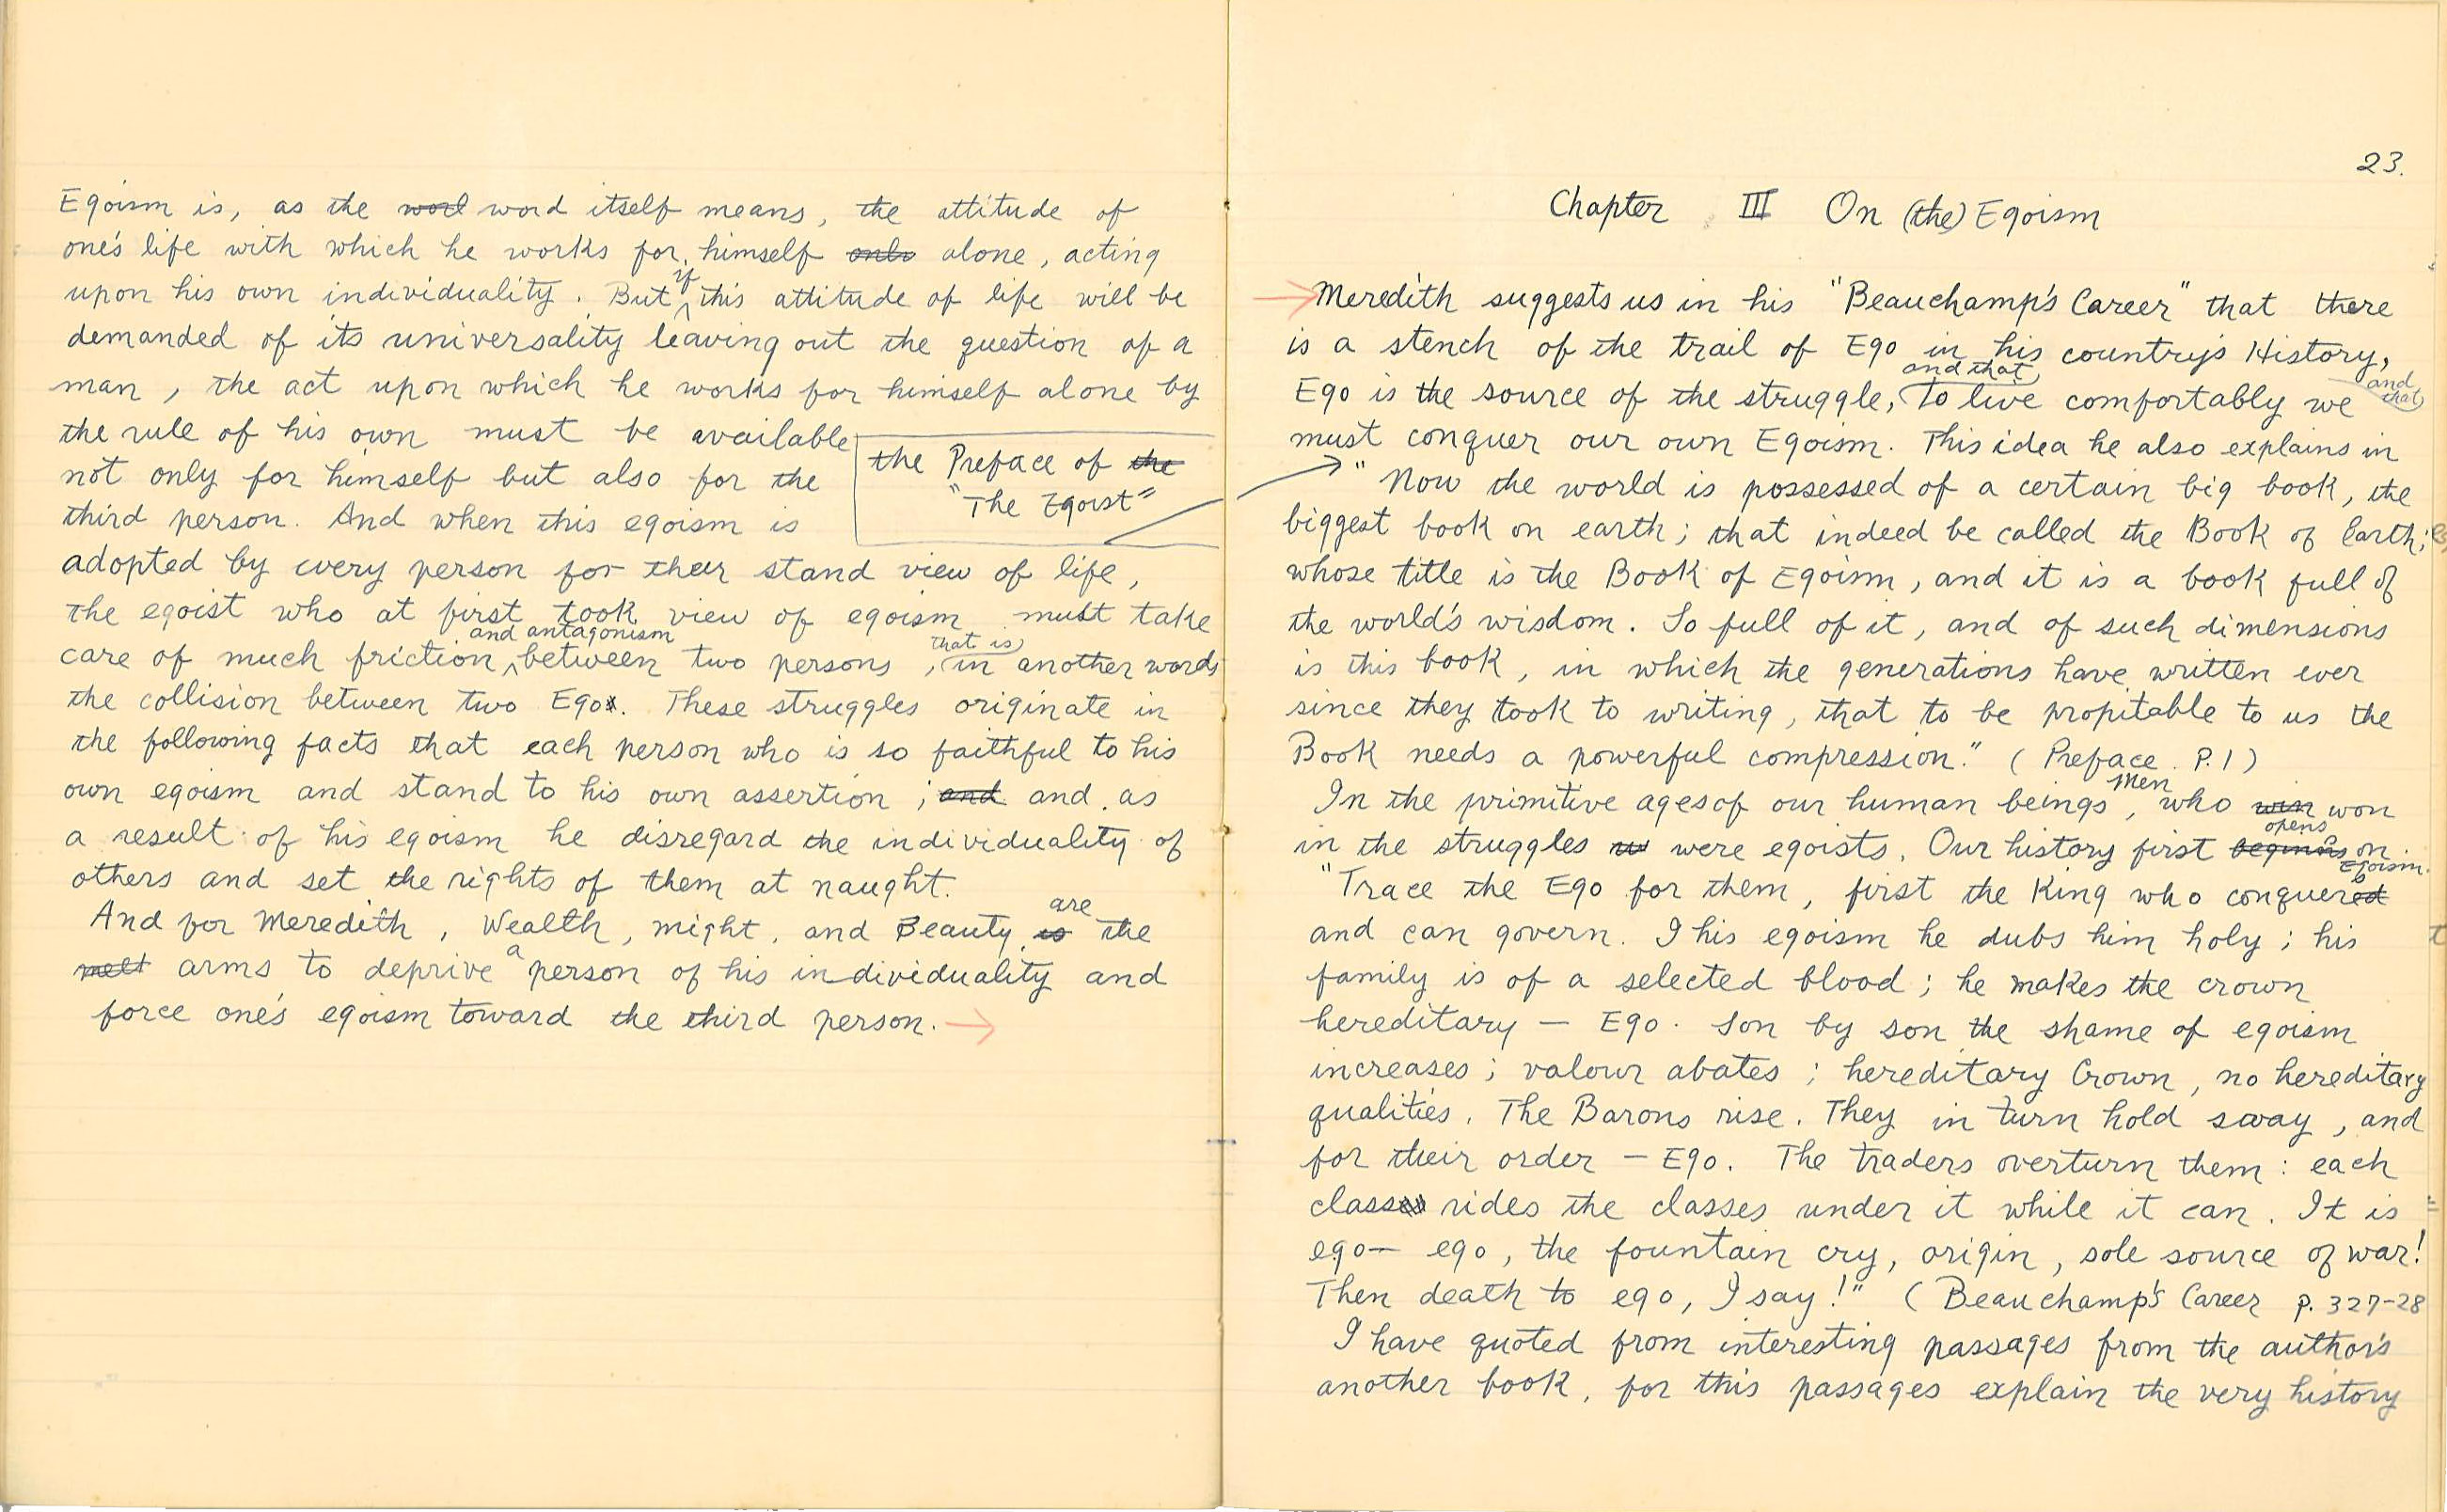 Egoism is, as the word word itself means, the attitude of
one's life with which he works for himself only alone, acting
upon his own individuality. But if this attitude of life will be
demanded of its universality leaving out the question of a
man, the act upon which he works for himself alone by
the rule of his own must be available
not only for himself but also for the
third person. And when this egoism is
adopted by every person for their stand view of life,
the egoist who at first took view of egoism must take
care of much friction and antagonism between two persons, that is in another words
the collision between two Ego. These struggles originate in
the following facts that each person who is so faithful to his
own egoism and stand to his own assertion; and and as
a result of his egoism he disregard the individuality of
others and set the rights of them at naught.
And for Meredith, Wealth, might, and Beauty is are the
arms to deprive a person of his individuality and
force one's egoism toward the third person. →
the Preface of the
"The Egoist"
23.
Chapter III On (the) Egoism
→ Meredith suggests us in his "Beauchamp's Career" that there
is a stench of the trail of Ego in his country's History,
and that
Ego is the source of the struggle, and that To live comfortably we
must conquer our own Egoism. This idea he also explains in
"Now the world is possessed of a certain big book, the
biggest book on earth; that indeed be called the Book of Earth;
whose title is the Book of Egoism, and it is a book full of
the world's wisdom. So full of it, and of such dimensions
is this book, in which the generations have written ever
since they took to writing, that to be propitable to us the
Book needs a powerful compression." (Preface. P.1)
In the primitive ages of our human beings, Men who win won
in the struggles were egoists. Our history first begins opens on Egoism.
"Trace the Ego for them, first the King who conquers
and can govern. I his egoism he dubs him holy; his
family is of a selected blood; he makes the crown
hereditary — Ego. Son by son the shame of egoism
increases; valour abates; hereditary Crown, no hereditary
qualities. The Barons rise. They in turn hold sway, and
for their order — Ego. The traders overturn them: each
class rides the classes under it while it can. It is
ego— ego, the fountain cry, origin, sole source of war!
Then death to ego, I say!" (Beauchamp's Career p. 327-28
I have quoted from interesting passages from the author's
another book, for this passages explain the very history